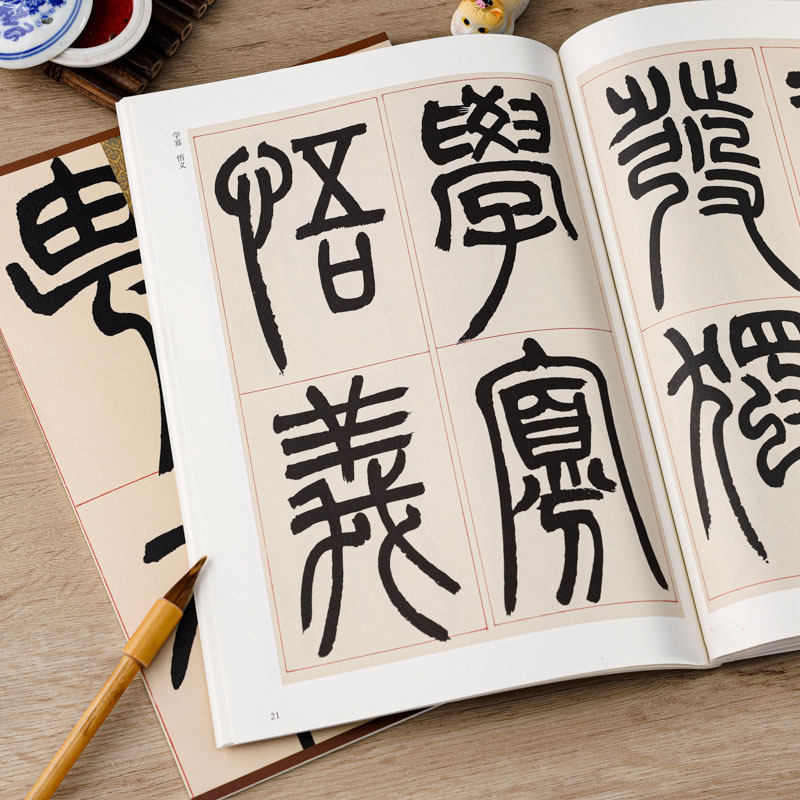 發獨
學寡
悟義
学寡 悟义
21